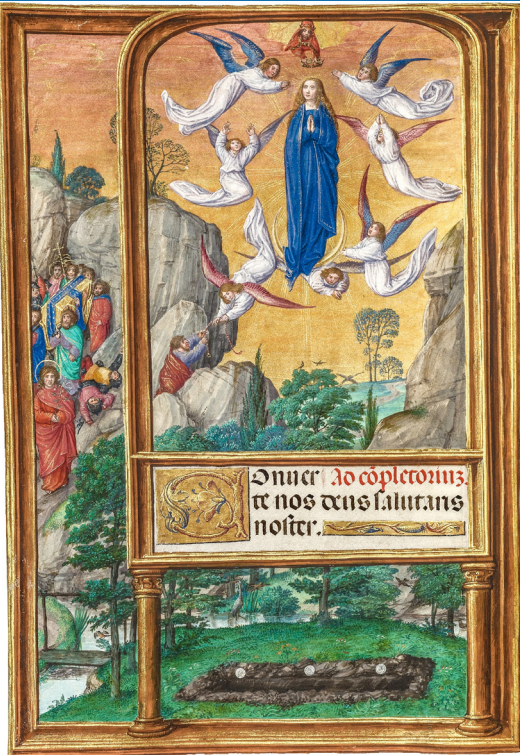 COnuer Ad cōpletoriuz.
te nos deus ſalutaris
noſter.